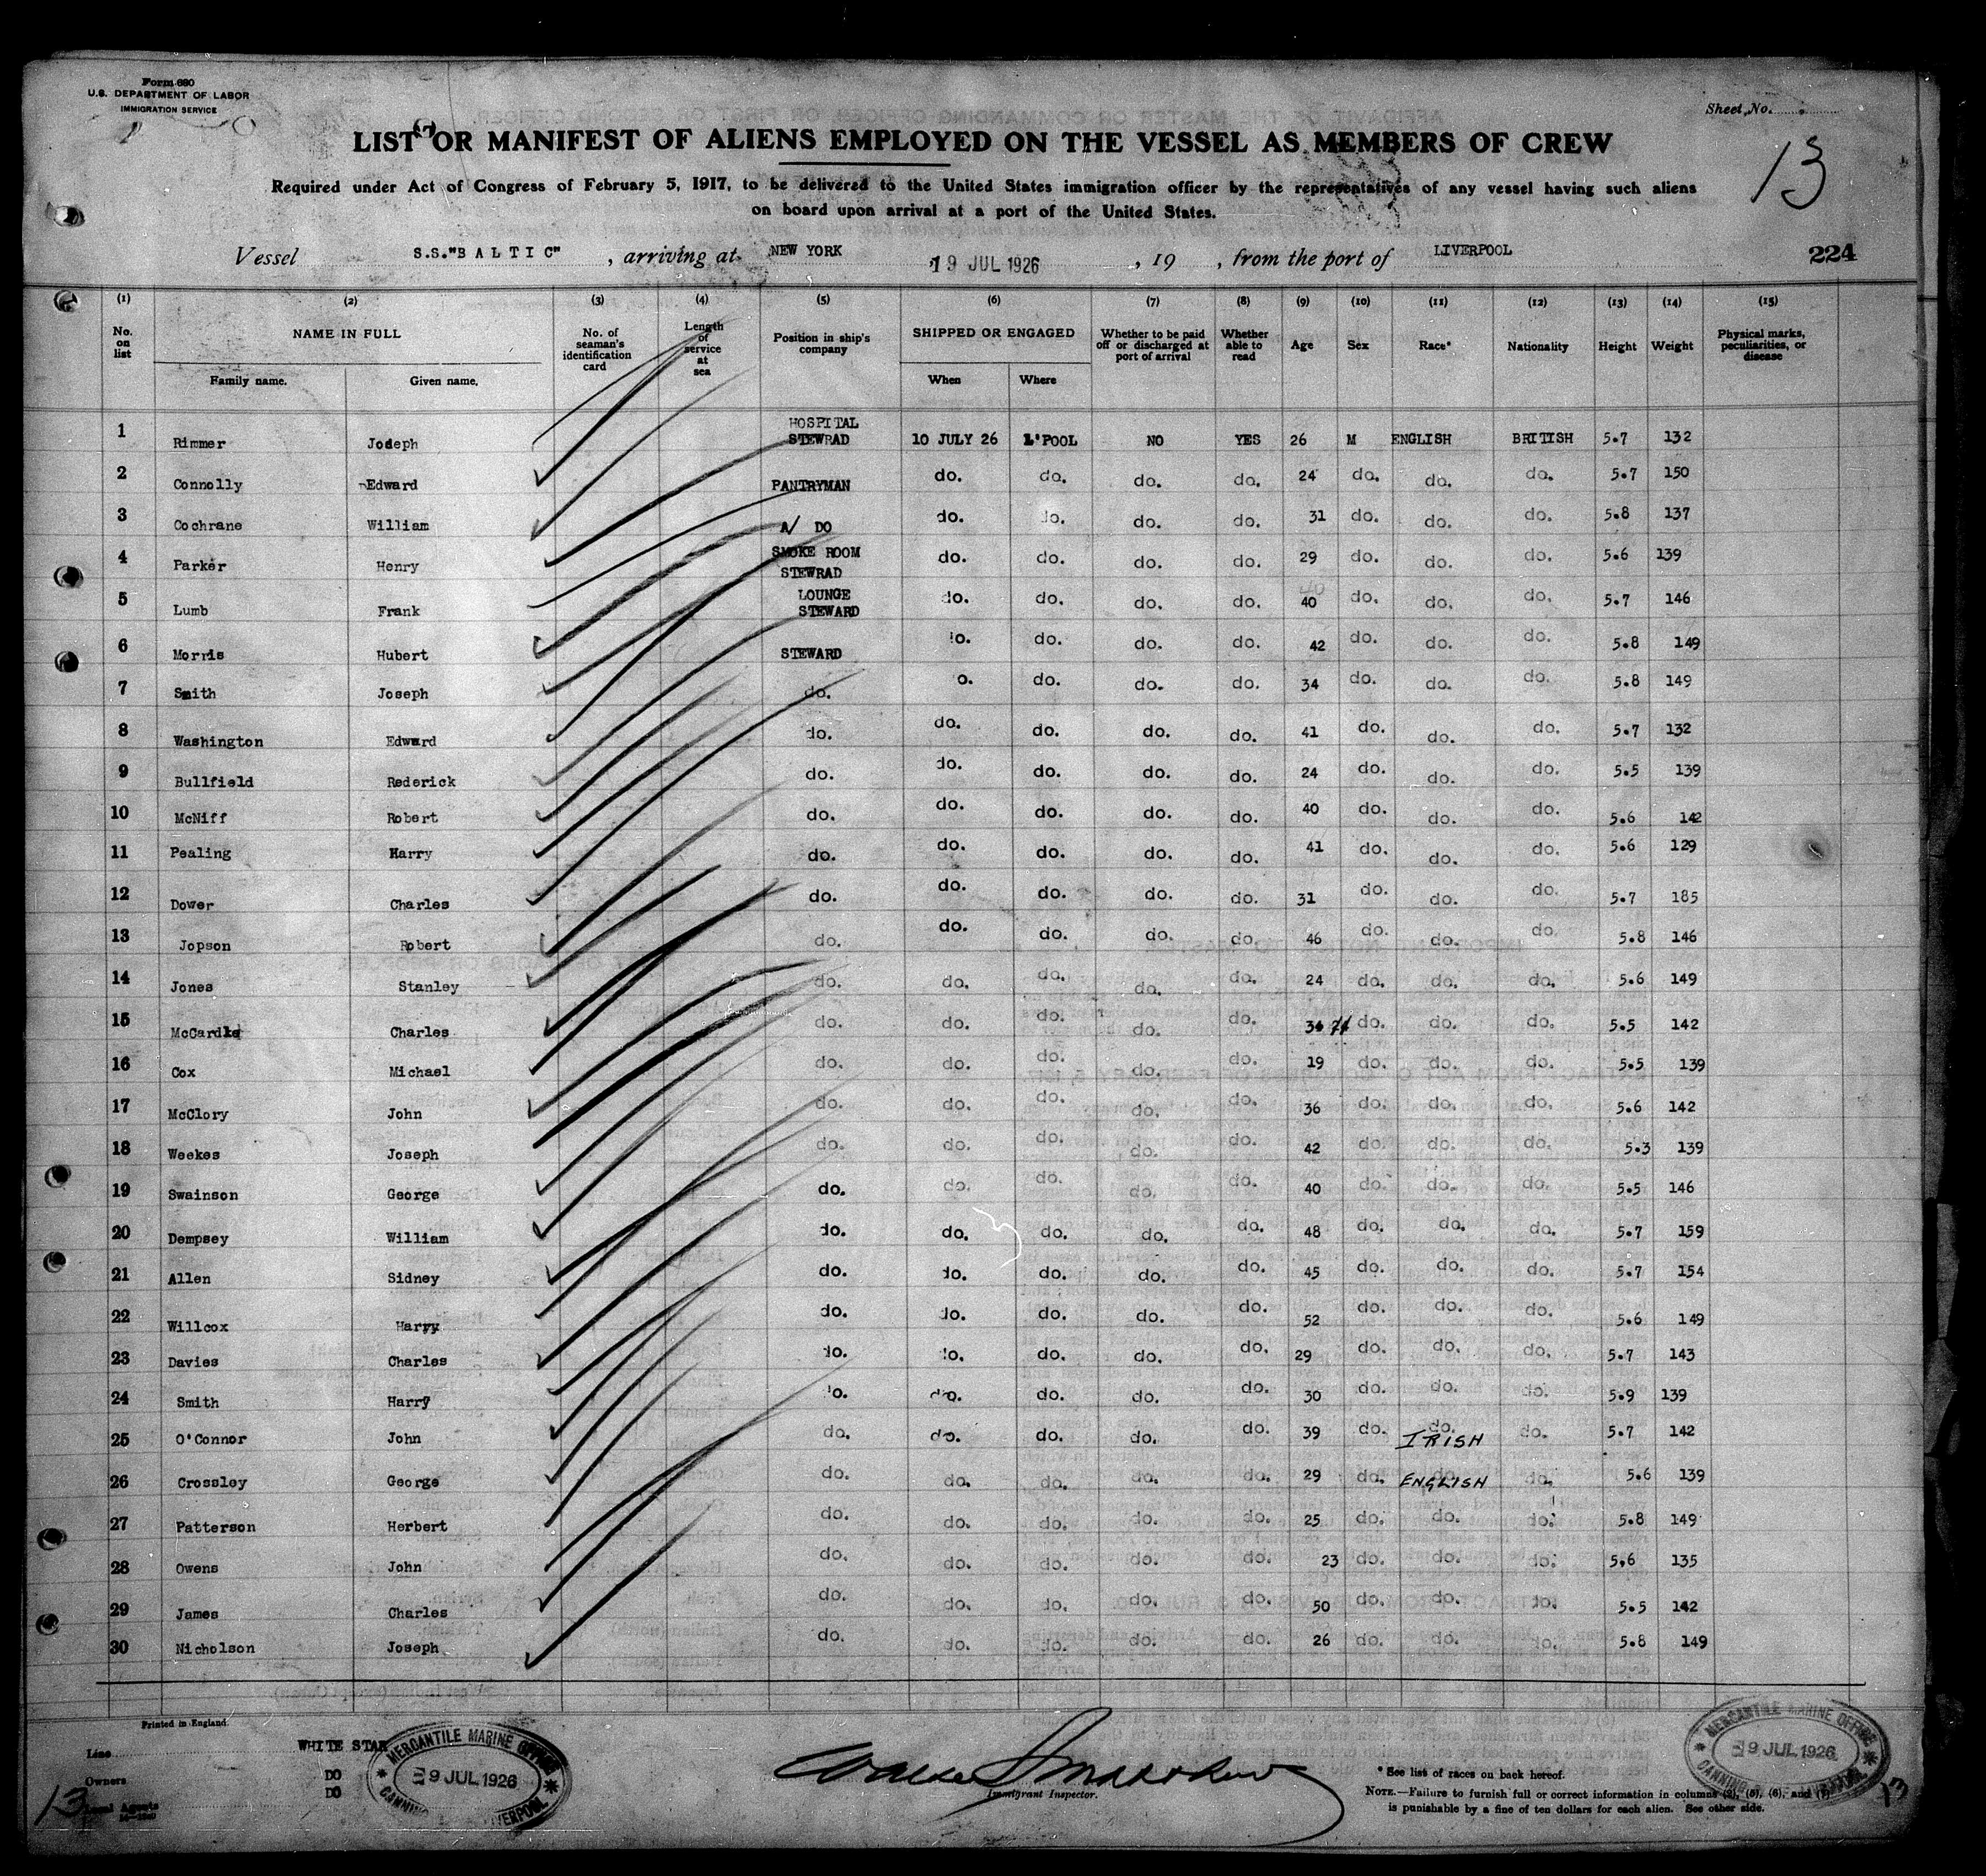 Form 680
U.S. DEPARTMENT OF LABOR
IMMIGRATION SERVICE
Sheet No.
13
LIST OR MANIFEST OF ALIENS EMPLOYED ON THE VESSEL AS MEMBERS OF CREW
Required under Act of Congress of February 5, 1917, to be delivered to the United States immigration officer by the representatives of any vessel having such aliens
on board upon arrival at a port of the United States.
Vessel S.S."BALTIC", arriving at NEW YORK 19 JUL 1926, 19 , from the port of LIVERPOOL 224
(1) (2) (3) (4) (5) (6) (7) (8) (9) (10) (11) (12) (13) (14) (15)
No. on list NAME IN FULL No. of seaman's identification card Length of service at sea Position in ship's company SHIPPED OR ENGAGED Whether to be paid off or discharged at port of arrival Whether able to read Age Sex Race* Nationality Height Weight Physical marks, peculiarities, or disease
Family name. Given name. When Where
1 Rimmer Jodeph HOSPITAL STEWRAD 10 JULY 26 L'POOL NO YES 26 M ENGLISH BRITISH 5.7 132
2 Connolly Edward PANTRYMAN do. do. do. do. 24 do. do. do. 5.7 150
3 Cochrane William A/ DO do. do. do. do. 31 do. do. do. 5.8 137
4 Parker Henry SMOKE ROOM STEWRAD do. do. do. do. 29 do. do. do. 5.6 139
5 Lumb Frank LOUNGE STEWARD do. do. do. do. 40 do. do. do. 5.7 146
6 Morris Hubert STEWARD do. do. do. do. 42 do. do. do. 5.8 149
7 Smith Joseph do. do. do. do. do. 34 do. do. do. 5.8 149
8 Washington Edward do. do. do. do. do. 41 do. do. do. 5.7 132
9 Bullfield Rederick do. do. do. do. do. 24 do. do. do. 5.5 139
10 McNiff Robert do. do. do. do. do. 40 do. do. do. 5.6 142
11 Pealing Harry do. do. do. do. do. 41 do. do. do. 5.6 129
12 Dower Charles do. do. do. do. do. 31 do. do. do. 5.7 185
13 Jopson Robert do. do. do. do. do. 46 do. do. do. 5.8 146
14 Jones Stanley do. do. do. do. do. 24 do. do. do. 5.6 149
15 McCardle Charles do. do. do. do. do. do. do. do. 5.5 142
16 Cox Michael do. do. do. do. do. 19 do. do. do. 5.5 139
17 McClory John do. do. do. do. do. 36 do. do. do. 5.6 142
18 Weekes Joseph do. do. do. do. do. 42 do. do. do. 5.3 139
19 Swainson George do. do. do. do. do. 40 do. do. do. 5.5 146
20 Dempsey William do. do. do. do. do. 48 do. do. do. 5.7 159
21 Allen Sidney do. do. do. do. do. 45 do. do. do. 5.7 154
22 Willcox Harry do. do. do. do. do. 52 do. do. do. 5.6 149
23 Davies Charles do. do. do. do. do. 29 do. do. do. 5.7 143
24 Smith Harry do. do. do. do. do. 30 do. do. do. 5.9 139
25 O'Connor John do. do. do. do. do. 39 do. do. IRISH do. 5.7 142
26 Crossley George do. do. do. do. do. 29 do. ENGLISH do. 5.6 139
27 Patterson Herbert do. do. do. do. do. 25 do. do. do. 5.8 149
28 Owens John do. do. do. do. do. 23 do. do. do. 5.6 135
29 James Charles do. do. do. do. do. 50 do. do. do. 5.5 142
30 Nicholson Joseph do. do. do. do. do. 26 do. do. do. 5.8 149
Printed in England.
Line WHITE STAR
Owners DO
Local Agents DO
13
MERCANTILE MARINE OFFICE
9 JUL 1926
CANNING LIVERPOOL
Immigrant Inspector.
* See list of races on back hereof.
NOTE.—Failure to furnish full or correct information in columns (2), (5), (6), and (7)
is punishable by a fine of ten dollars for each alien. See other side.
MERCANTILE MARINE OFFICE
9 JUL 1926
CANNING LIVERPOOL
13